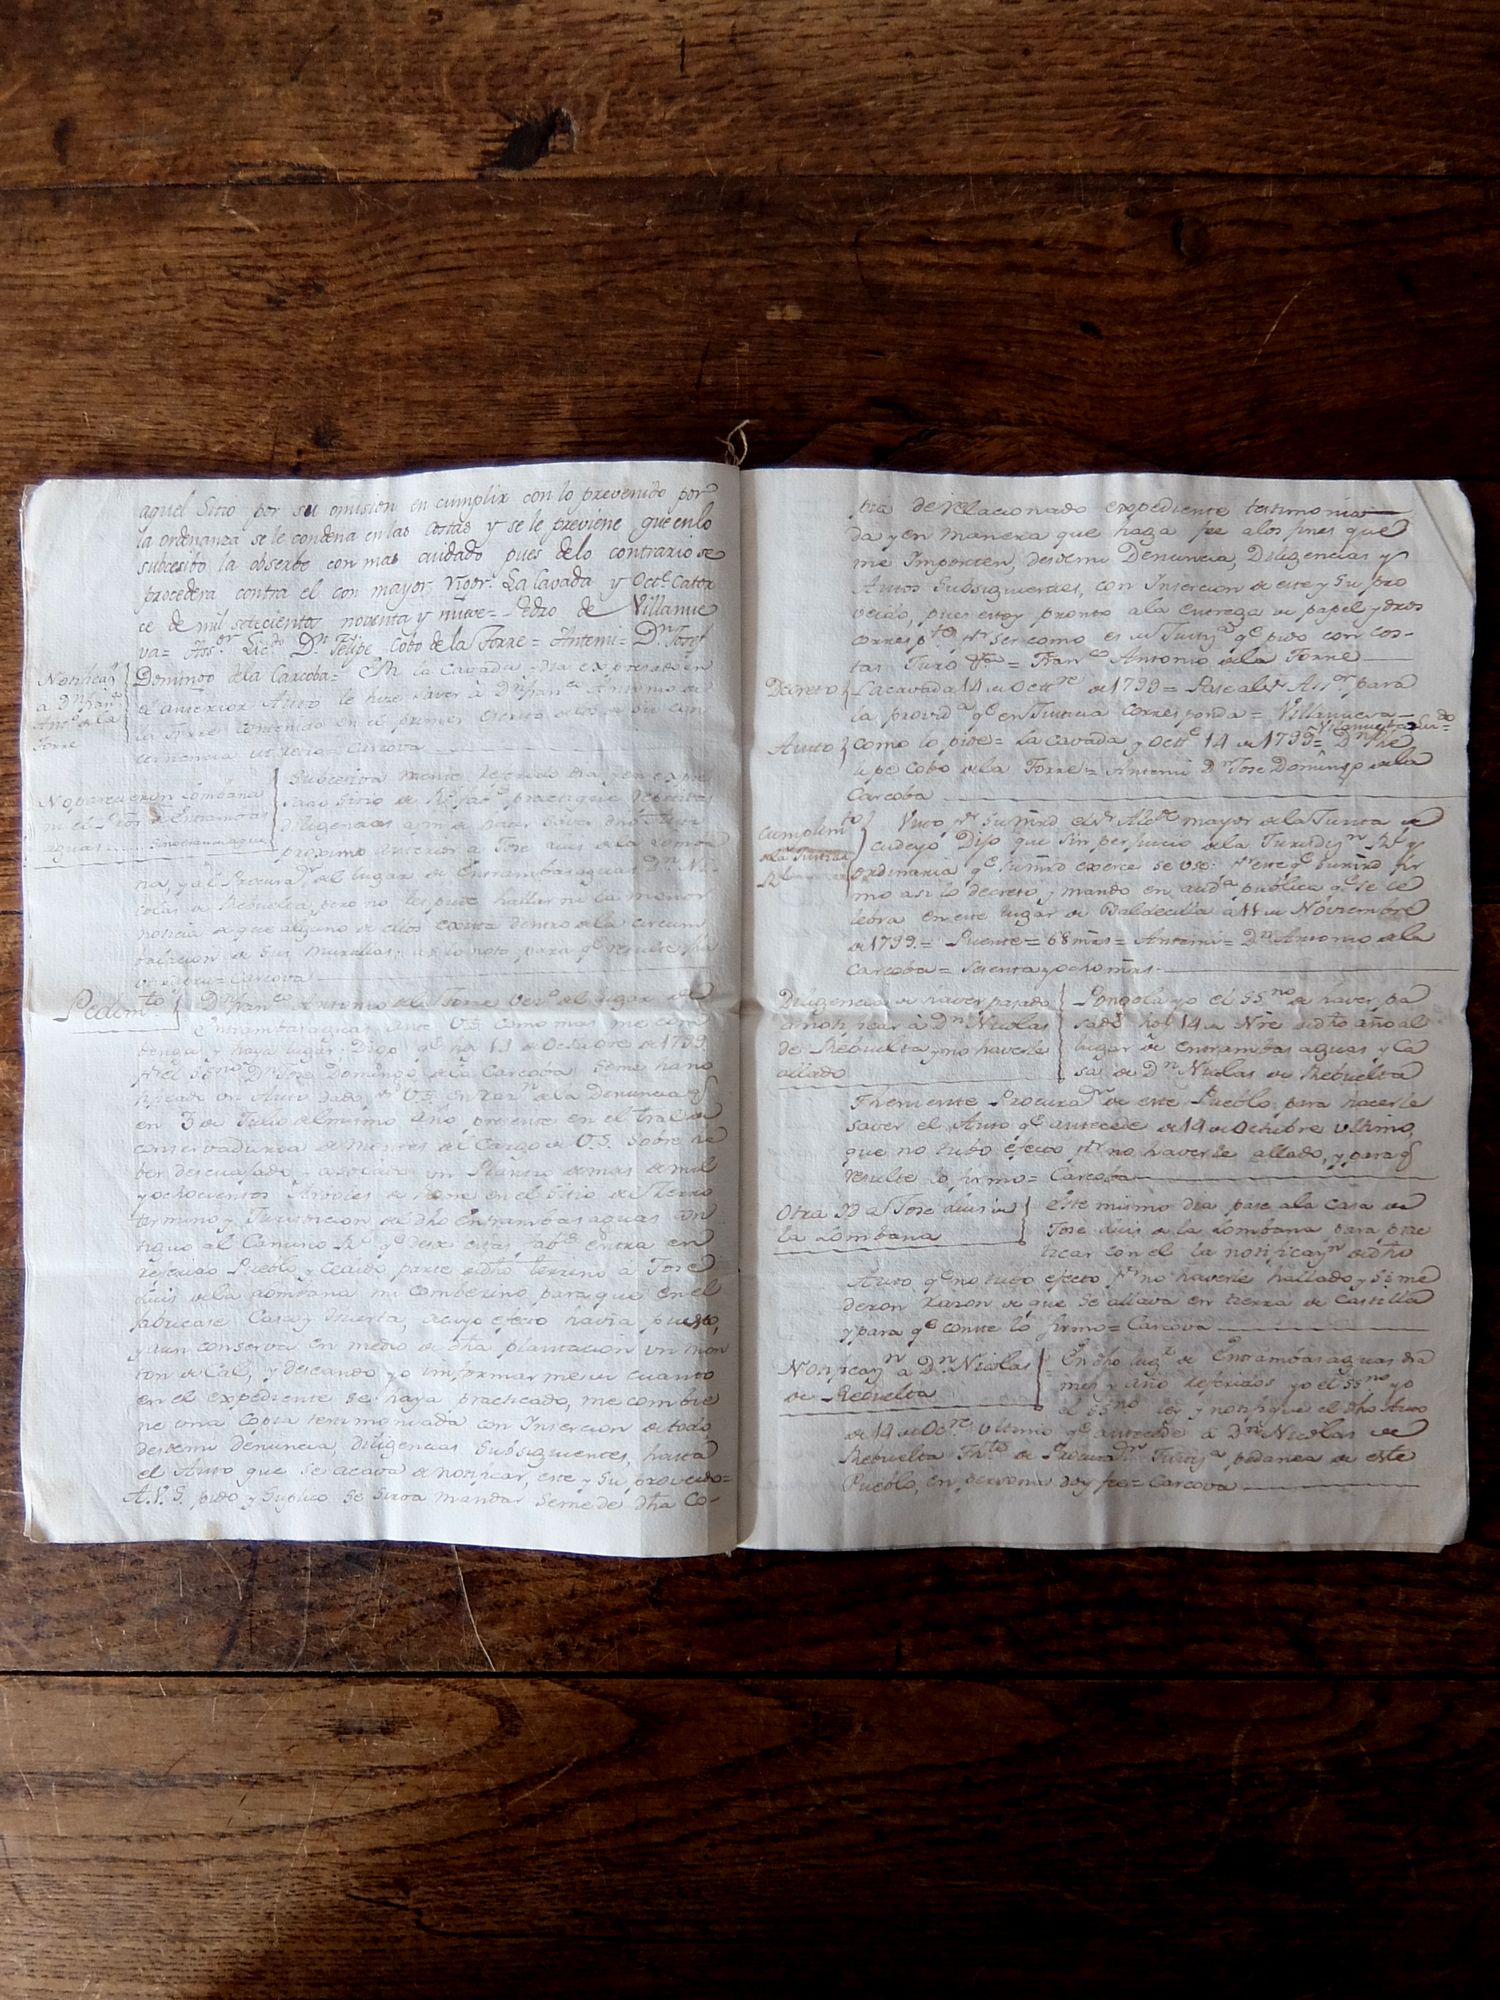 aquel Sitio por su omision en cumplir con lo prevenido por
la ordenanza se le condena en las costas y se le previene que en lo
subcesibo la obserbe con mas cuidado pues delo contrario se
procedera contra el con mayor rigor. La Cavada y Octe. Cator
ce de mil setecientos noventa y nueve = Pedro de Villanue
va = Asor. Licdo. Dn. Felipe Cobo de la Torre = Antemi = Dn. Josef
Domingo de la Carcoba =
Notificazn
a Dn. Franco
Anto. de la
Torre
En la Cavada dia expresado en
el anterior Auto le hice saver à Dn. Franco Antonio de
la Torre contenido en el primer escrito
Carcova
No parecieron Lombana
ni el Pror. de Entrambas
aguas
Subcesiva mente dicho dia, y en expre
sado Sitio de Rl. fabca. practiquè repetidas
diligencias a fin de hacer saver dho Auto
proximo anterior à Jose Luis de la Lomba
na, y al Procurador. del lugar de Entrambasaguas Dn. Ni
colas de Rebuelta, pero no les pude hallar ni la menor
noticia de que alguno de ellos exista dentro de la circum
balazion de sus Murallas: asi lo noto para qe. resulte
Carcova
Pedimto.
Dn. Franco Antonio de la Torre vezo. del lugar de
Entrambasaguas, ante V.S. como mas me con
benga, y haya lugar; Digo qe. hoy 14 de Octubre de 1799
pr. el SSno. Dn. Jose Domingo de la Carcoba seme ha no
tificado un Auto dado pr. V.S. en razn. de la denuncia q
en 3 de Julio del mismo año presente en el tral. de
conservaduria de Montes del Cargo de V.S. sobre ha
ber descuajado y asolado un Plantio de mas de mil
y ochocientos Arboles de roble en el Sitio de
termino y Jurisdicion de dho Entrambasaguas con
tiguo al Camino Rl. qe. desde estas fabs. entra en
referido Pueblo, y cedido parte de dho terreno à José
Luis de la Lombana mi combecino, para que en el
fabricase Casa y Huerta, à cuyo efecto havia puesto,
y aun conserva en medio de dha plantacion un mon
ton de Cal, y deseando yo informarme de cuanto
en el expediente se haya practicado, me combie
ne una Copia testimoniada con Insercion de todo
desde mi denuncia, diligencias Subsiguentes, hasta
el Auto que se acava de notificar, este y su proveido =
A V.S. pido y Suplico se sirva mandar se me de dha Co-
pia de relacionado expediente testimonia
da y en manera que haga fee a los fines que
me Importen, desde mi Denuncia, Diligencias y
Autos Subsiguentes, con Insercion de este y su pro
veido, pues estoy pronto a la entrega de papel y dros
correspte. pr. ser como es de Justiza. qe. pido con cos-
tas Juro = Franco Antonio de la Torre
Decreto
La cavada 14 de Octre. de 1799 = Pase al Sr. Asor. para
la provida. qe. en Justicia corresponda = Villanueva
Auto
Como lo pide = La Cavada y Octe. 14 de 1799 = Villanueba = Licdo =
Dn. Phe
lipe Cobo de la Torre = Antemi Dn. Jose Domingo de la
Carcoba
Cumplimto.
de la Justicia
Rl.
Visto pr. su mrd el Sr. Alcde. mayor de la Junta de
Cudeyo Dijo que sin perjuicio de la Jurisdizn. Rl. y
ordinaria qe. su mrd exerce se use: pr. este qe. su mrd fir
mo asi lo decreto y mando en auda. publica qe. se ce
lebra en este lugar de Baldecilla à 11 de Noviembre
de 1799. = Puente = 68 mrs = Antemi = Dn. Antonio de la
Carcoba = Sesenta y ocho mrs.
Diligencia de haver pasado
a notificar à Dn. Nicolas
de Rebuelta y no haverle
allado
Pongola yo el SSno. de haver pa
sado hoy 14 de Nre de dho año al
lugar de Entrambas aguas y Ca
sa de Dn. Nicolas de Rebuelta
Theniente Procurador. de este Pueblo, para hacerle
saver el Auto qe. antecede de 14 de Octubre ultimo,
que no tubo efecto pr. no haverle allado, y para q
resulte lo firmo = Carcoba
Otra Id a Jose Luis de
la Lombana
Este mismo dia pase a la Casa de
José Luis de la Lombana para prac
ticar con el la notificazn. de dho
Auto qe. no tubo efecto pr. no haverle hallado y se me
dieron razon de que se allava en tierra de Castilla
y para qe. conste lo firmo = Carcova
Notificazn. à Dn. Nicolas
de Rebuelta
En dho lugr. de Entrambas aguas dia
mes y año referidos yo el SSno. yo
el SSno. lei y notifique el dho Auto
de 14 de Ocre. ultimo qe. antecede à Dn. Nicolas de
Rebuelta Thte. de Procurador. Justiza. pedanea de este
Pueblo, en persona doy fee = Carcova